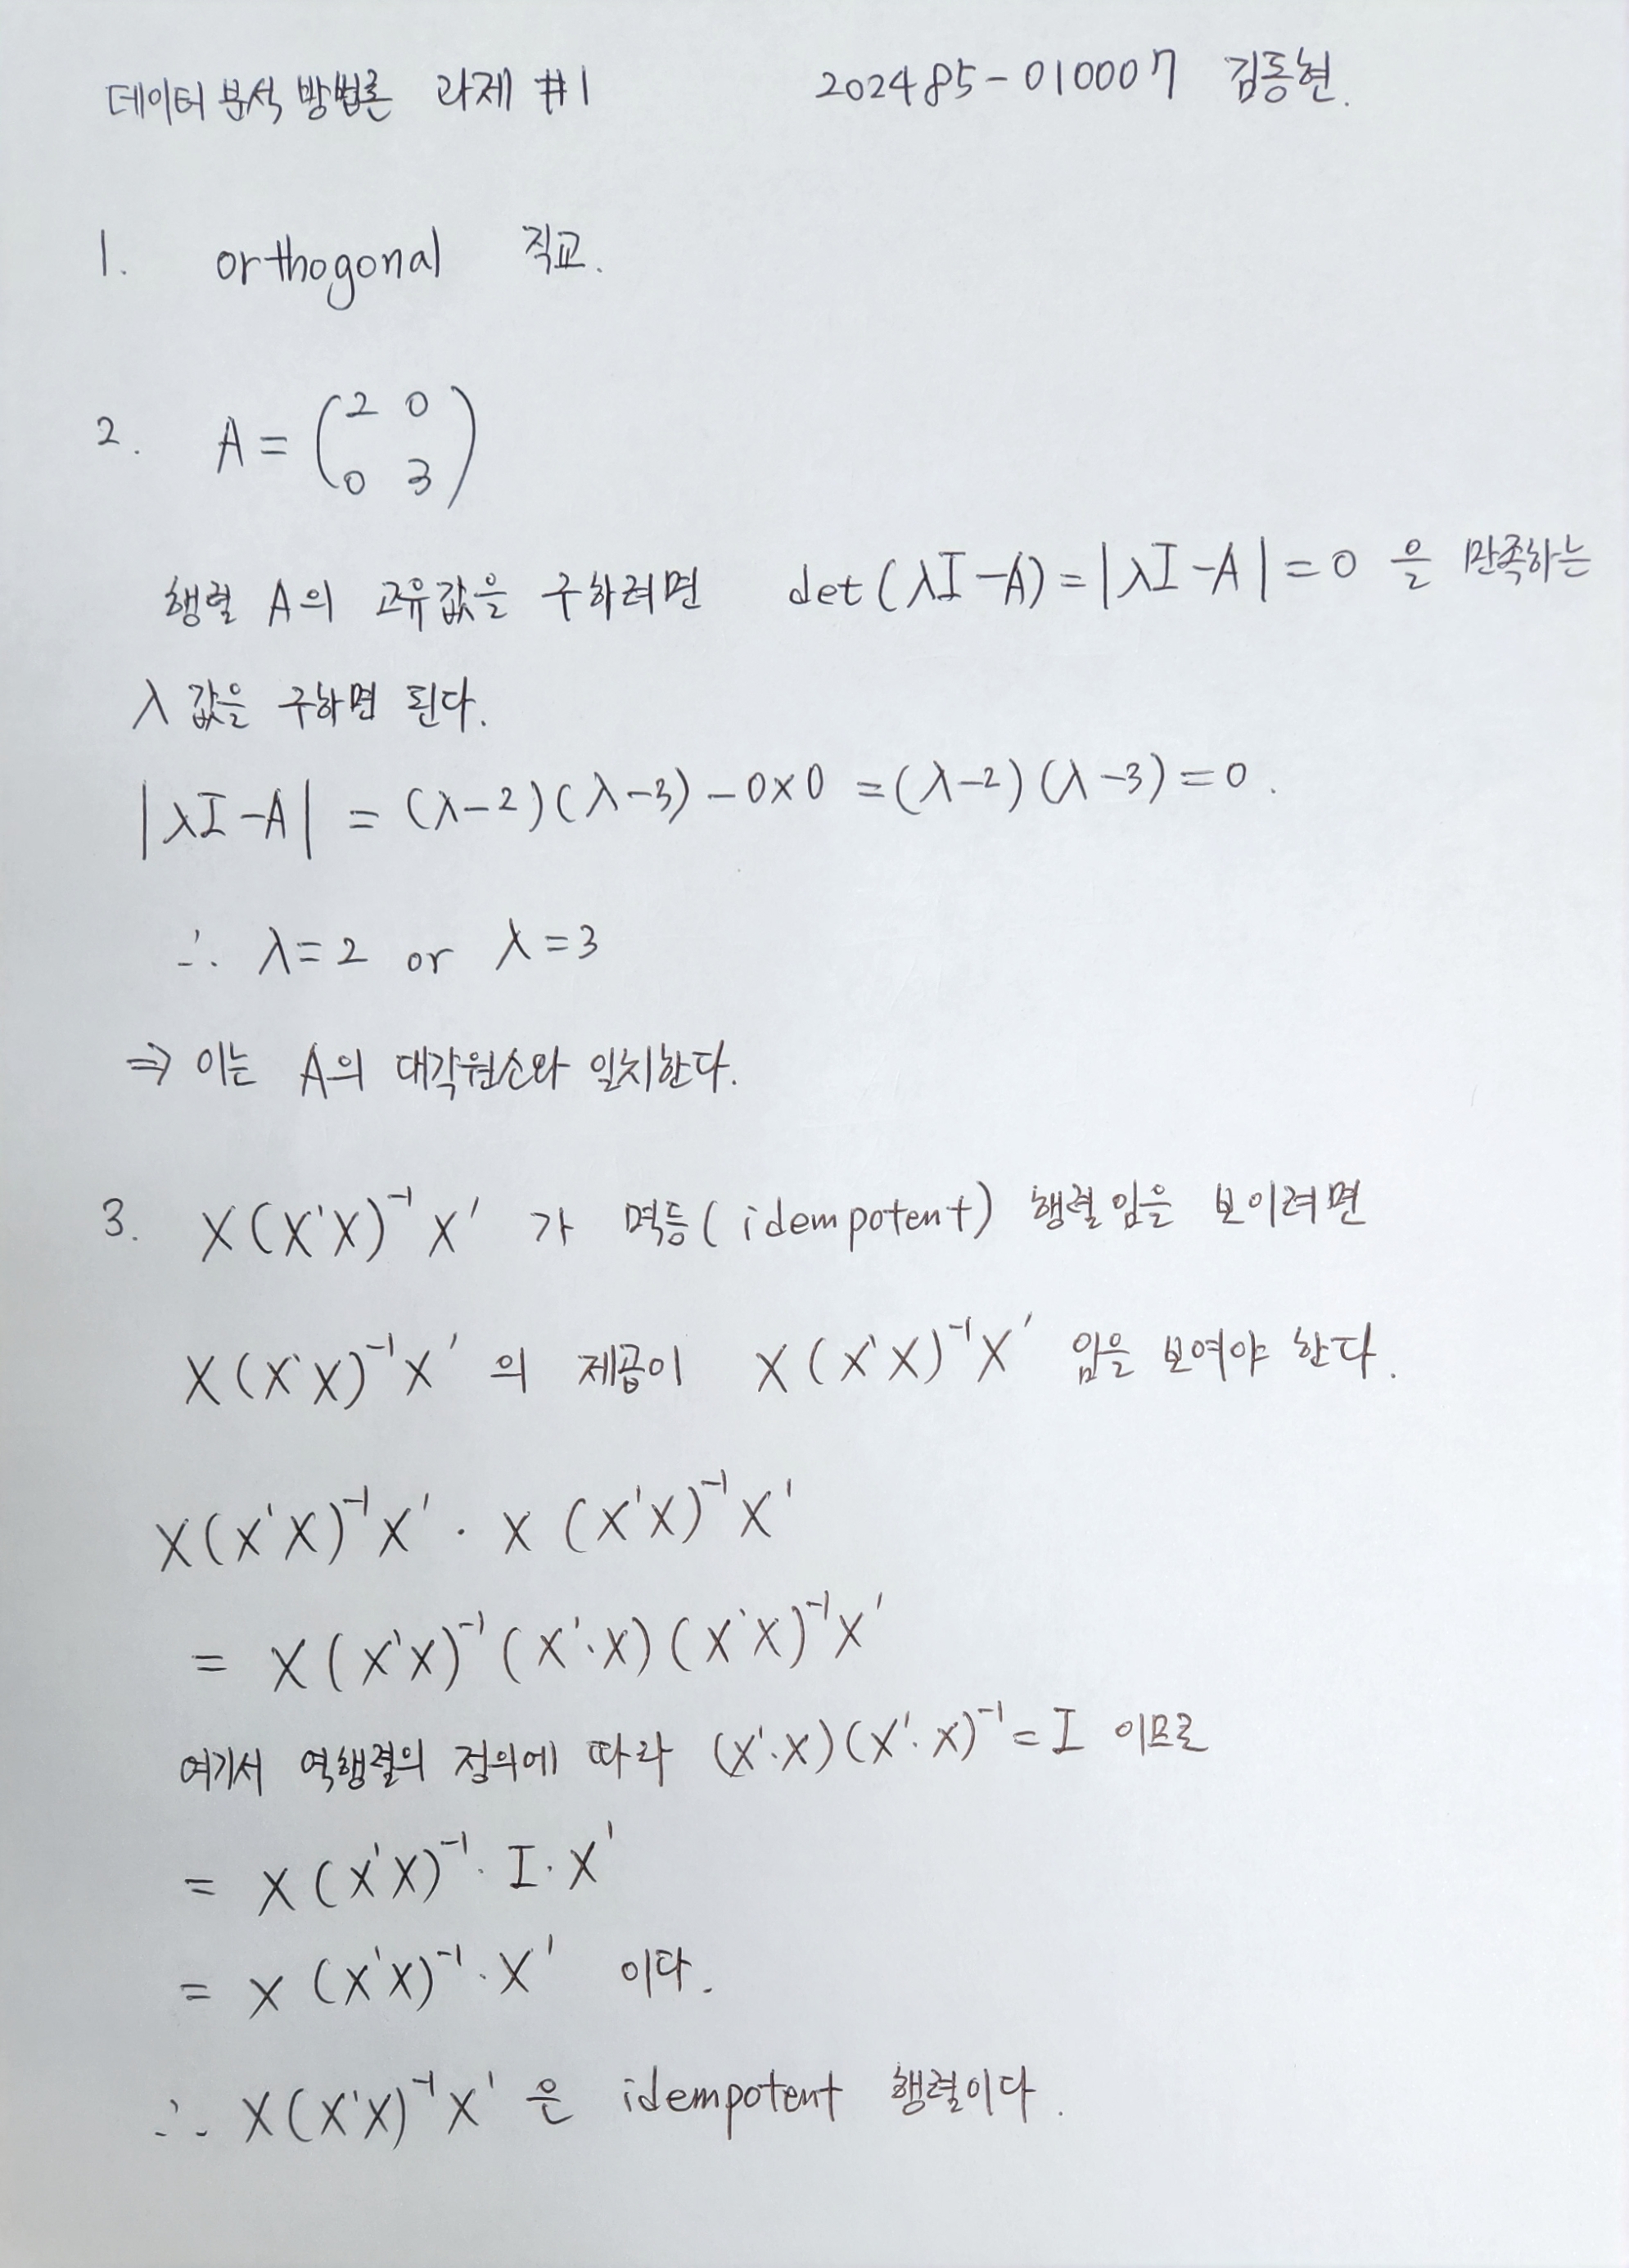 데이터 분석 방법론 과제 #1 202485-010007 김동현.
1. orthogonal 직교.
2. A = (2 0
0 3)
행렬 A의 고유값을 구하려면 det(λI-A)=|λI-A|=0 을 만족하는
λ값을 구하면 된다.
|λI-A| = (λ-2)(λ-3)-0×0 =(λ-2)(λ-3)=0.
∴ λ=2 or λ=3
⇒ 이는 A의 대각원소와 일치한다.
3. X(X'X)⁻¹X' 가 멱등(idempotent) 행렬임을 보이려면
X(X'X)⁻¹X' 의 제곱이 X(X'X)⁻¹X' 임을 보여야 한다.
X(X'X)⁻¹X' · X(X'X)⁻¹X'
= X(X'X)⁻¹(X'·X)(X'X)⁻¹X'
여기서 역행렬의 정의에 따라 (X'·X)(X'·X)⁻¹=I 이므로
= X(X'X)⁻¹·I·X'
= X(X'X)⁻¹·X' 이다.
∴ X(X'X)⁻¹X' 은 idempotent 행렬이다.